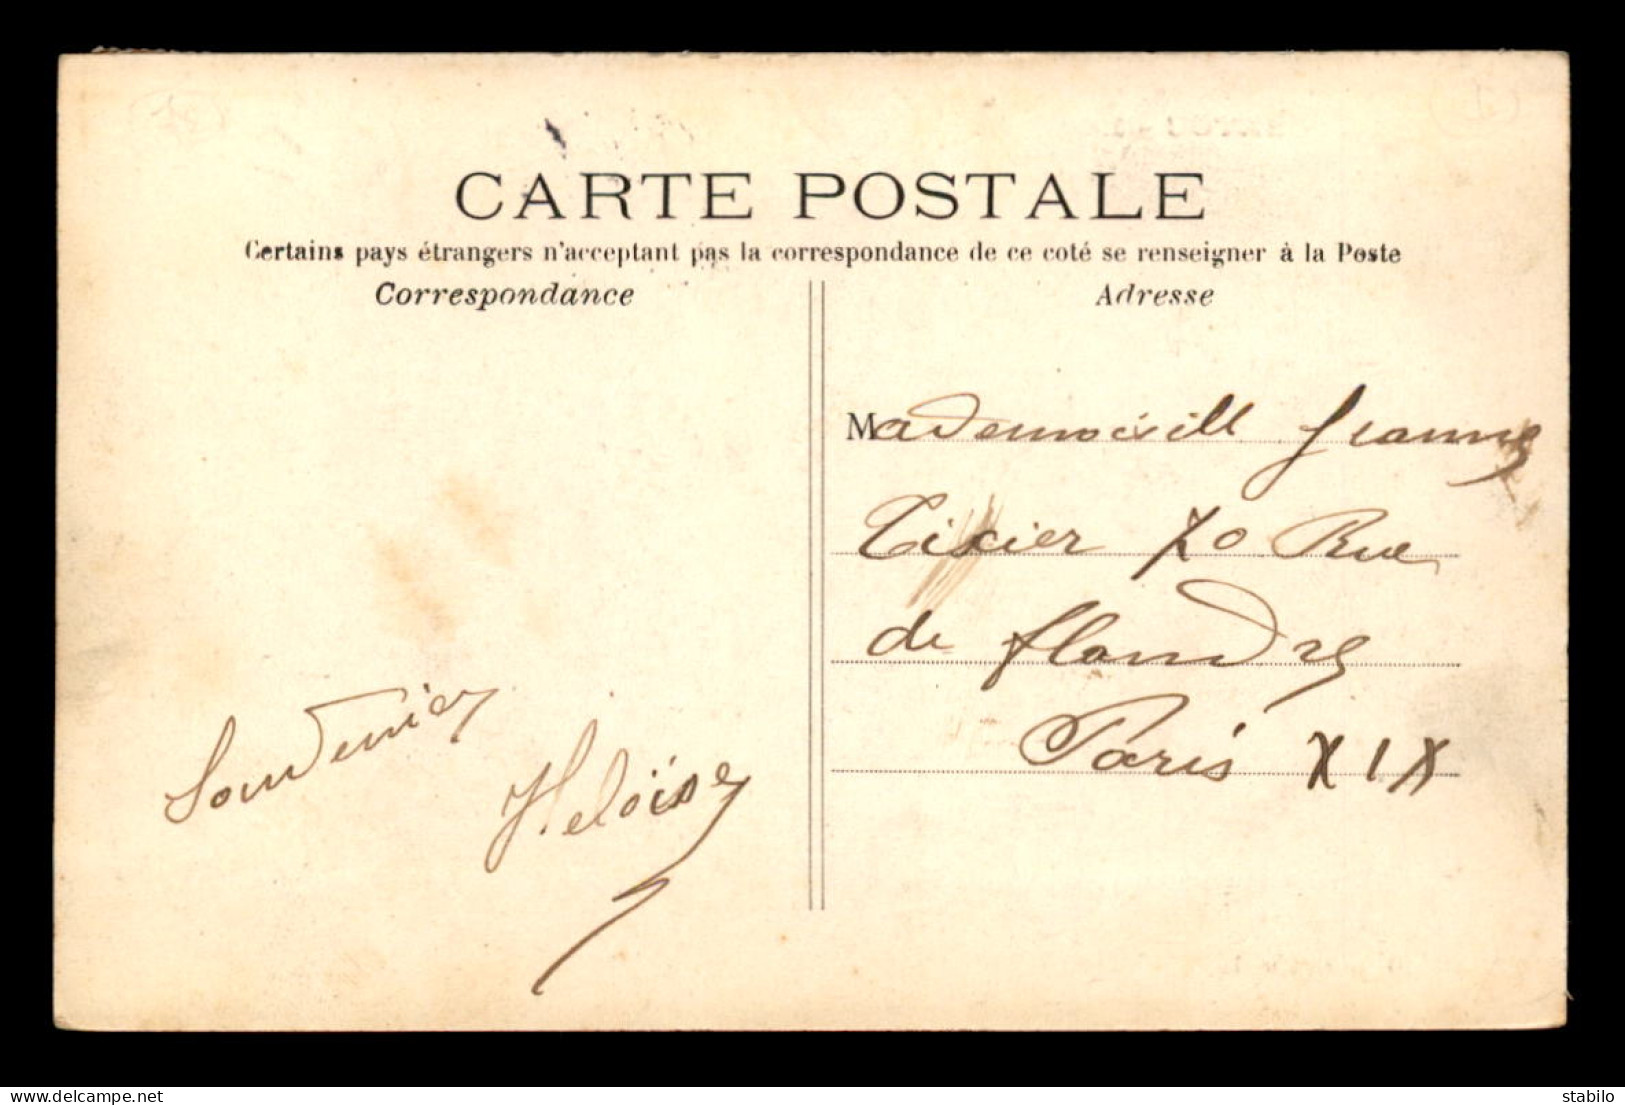 CARTE POSTALE
Certains pays étrangers n'acceptant pas la correspondance de ce coté se renseigner à la Poste
Correspondance
Adresse
Mademoisill Jeanne
Tixier 70 Rue
de flandre
Paris XIX
Heloïse
www.delcampe.net
stabilo